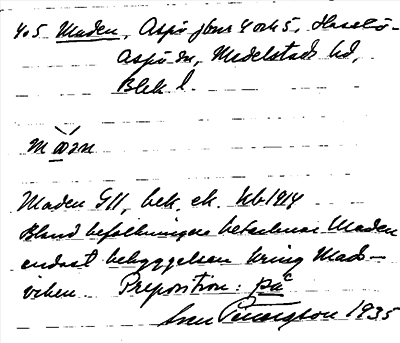 4o5 Maden, Aspö jbnr 4 och 5, Hasslö-
Aspö sn, Medelstads hd,
Blek. l.
Maden GII, bek. ek. kbl 1914
Bland befolkningen betecknar Maden
endast bebyggelsen kring Mad-
viken. Preposition: på
1935